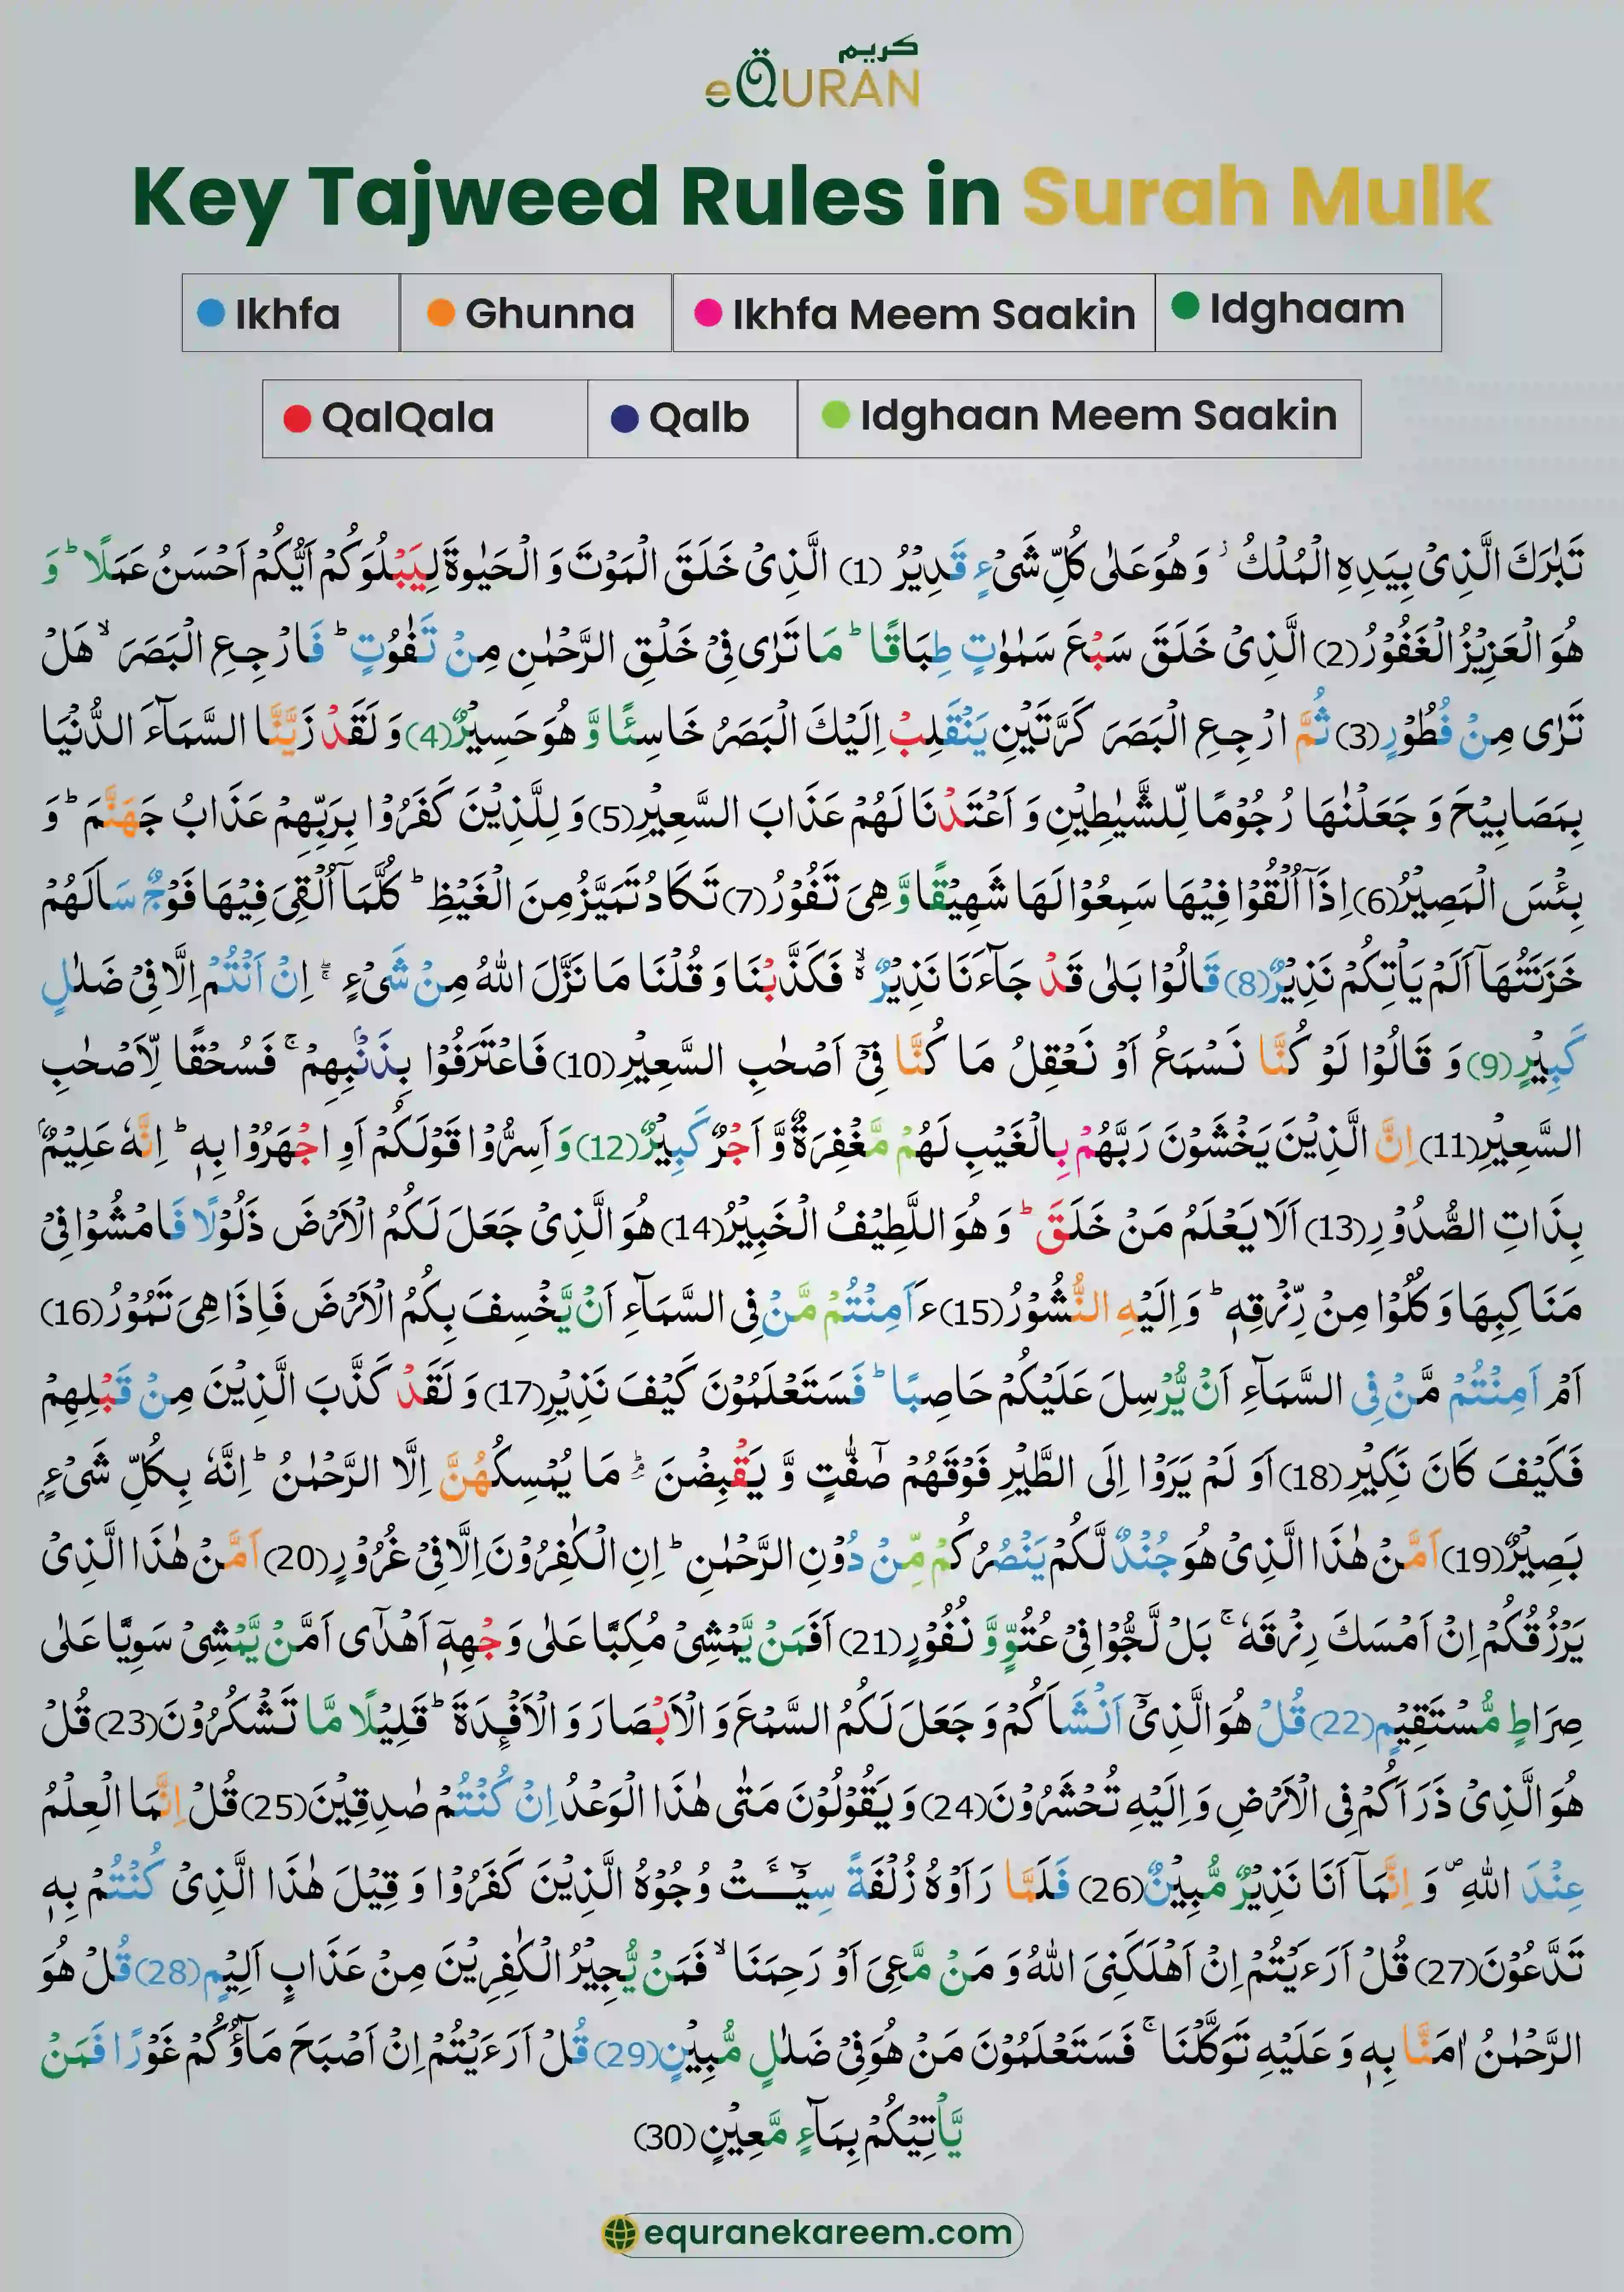 كريم
eQURAN
Key Tajweed Rules in Surah Mulk
Ikhfa Ghunna Ikhfa Meem Saakin Idghaam
QalQala Qalb Idghaan Meem Saakin
تَبٰرَكَ الَّذِیْ بِیَدِهِ الْمُلْكُ ٘ وَ هُوَ عَلٰى كُلِّ شَیْءٍ قَدِیْرُ (1) الَّذِیْ خَلَقَ الْمَوْتَ وَ الْحَیٰوةَ لِیَبْلُوَكُمْ اَیُّكُمْ اَحْسَنُ عَمَلًا ؕ وَ
هُوَ الْعَزِیْزُ الْغَفُوْرُ (2) الَّذِیْ خَلَقَ سَبْعَ سَمٰوٰتٍ طِبَاقًا ؕ مَا تَرٰى فِیْ خَلْقِ الرَّحْمٰنِ مِنْ تَفٰوُتٍ ؕ فَارْجِعِ الْبَصَرَ ۙ هَلْ
تَرٰى مِنْ فُطُوْرٍ (3) ثُمَّ ارْجِعِ الْبَصَرَ كَرَّتَیْنِ یَنْقَلِبْ اِلَیْكَ الْبَصَرُ خَاسِئًا وَّ هُوَ حَسِیْرٌ (4) وَ لَقَدْ زَیَّنَّا السَّمَآءَ الدُّنْیَا
بِمَصَابِیْحَ وَ جَعَلْنٰهَا رُجُوْمًا لِّلشَّیٰطِیْنِ وَ اَعْتَدْنَا لَهُمْ عَذَابَ السَّعِیْرِ (5) وَ لِلَّذِیْنَ كَفَرُوْا بِرَبِّهِمْ عَذَابُ جَهَنَّمَ ؕ وَ
بِئْسَ الْمَصِیْرُ (6) اِذَاۤ اُلْقُوْا فِیْهَا سَمِعُوْا لَهَا شَهِیْقًا وَّ هِیَ تَفُوْرُ (7) تَكَادُ تَمَیَّزُ مِنَ الْغَیْظِ ؕ كُلَّمَاۤ اُلْقِیَ فِیْهَا فَوْجٌ سَاَلَهُمْ
خَزَنَتُهَاۤ اَلَمْ یَاْتِكُمْ نَذِیْرٌ (8) قَالُوْا بَلٰى قَدْ جَآءَنَا نَذِیْرٌ ۙ فَكَذَّبْنَا وَ قُلْنَا مَا نَزَّلَ اللّٰهُ مِنْ شَیْءٍ ۚۖ اِنْ اَنْتُمْ اِلَّا فِیْ ضَلٰلٍ
كَبِیْرٍ (9) وَ قَالُوْا لَوْ كُنَّا نَسْمَعُ اَوْ نَعْقِلُ مَا كُنَّا فِیْۤ اَصْحٰبِ السَّعِیْرِ (10) فَاعْتَرَفُوْا بِذَنْۢبِهِمْ ۚ فَسُحْقًا لِّاَصْحٰبِ
السَّعِیْرِ (11) اِنَّ الَّذِیْنَ یَخْشَوْنَ رَبَّهُمْ بِالْغَیْبِ لَهُمْ مَّغْفِرَةٌ وَّ اَجْرٌ كَبِیْرٌ (12) وَ اَسِرُّوْا قَوْلَكُمْ اَوِ اجْهَرُوْا بِهٖ ؕ اِنَّهٗ عَلِیْمٌۢ
بِذَاتِ الصُّدُوْرِ (13) اَلَا یَعْلَمُ مَنْ خَلَقَ ؕ وَ هُوَ اللَّطِیْفُ الْخَبِیْرُ (14) هُوَ الَّذِیْ جَعَلَ لَكُمُ الْاَرْضَ ذَلُوْلًا فَامْشُوْا فِیْ
مَنَاكِبِهَا وَ كُلُوْا مِنْ رِّزْقِهٖ ؕ وَ اِلَیْهِ النُّشُوْرُ (15) ءَاَمِنْتُمْ مَّنْ فِی السَّمَآءِ اَنْ یَّخْسِفَ بِكُمُ الْاَرْضَ فَاِذَا هِیَ تَمُوْرُ (16)
اَمْ اَمِنْتُمْ مَّنْ فِی السَّمَآءِ اَنْ یُّرْسِلَ عَلَیْكُمْ حَاصِبًا ؕ فَسَتَعْلَمُوْنَ كَیْفَ نَذِیْرِ (17) وَ لَقَدْ كَذَّبَ الَّذِیْنَ مِنْ قَبْلِهِمْ
فَكَیْفَ كَانَ نَكِیْرِ (18) اَوَ لَمْ یَرَوْا اِلَى الطَّیْرِ فَوْقَهُمْ صٰٓفّٰتٍ وَّ یَقْبِضْنَ ؔۘؕ مَا یُمْسِكُهُنَّ اِلَّا الرَّحْمٰنُ ؕ اِنَّهٗ بِكُلِّ شَیْءٍۭ
بَصِیْرٌ (19) اَمَّنْ هٰذَا الَّذِیْ هُوَ جُنْدٌ لَّكُمْ یَنْصُرُكُمْ مِّنْ دُوْنِ الرَّحْمٰنِ ؕ اِنِ الْكٰفِرُوْنَ اِلَّا فِیْ غُرُوْرٍ (20) اَمَّنْ هٰذَا الَّذِیْ
یَرْزُقُكُمْ اِنْ اَمْسَكَ رِزْقَهٗ ۚ بَلْ لَّجُّوْا فِیْ عُتُوٍّ وَّ نُفُوْرٍ (21) اَفَمَنْ یَّمْشِیْ مُكِبًّا عَلٰى وَجْهِهٖۤ اَهْدٰۤى اَمَّنْ یَّمْشِیْ سَوِیًّا عَلٰى
صِرَاطٍ مُّسْتَقِیْمٍ (22) قُلْ هُوَ الَّذِیْۤ اَنْشَاَكُمْ وَ جَعَلَ لَكُمُ السَّمْعَ وَ الْاَبْصَارَ وَ الْاَفْـِٕدَةَ ؕ قَلِیْلًا مَّا تَشْكُرُوْنَ (23) قُلْ
هُوَ الَّذِیْ ذَرَاَكُمْ فِی الْاَرْضِ وَ اِلَیْهِ تُحْشَرُوْنَ (24) وَ یَقُوْلُوْنَ مَتٰى هٰذَا الْوَعْدُ اِنْ كُنْتُمْ صٰدِقِیْنَ (25) قُلْ اِنَّمَا الْعِلْمُ
عِنْدَ اللّٰهِ ۪ وَ اِنَّمَاۤ اَنَا نَذِیْرٌ مُّبِیْنٌ (26) فَلَمَّا رَاَوْهُ زُلْفَةً سِیْٓـَٔتْ وُجُوْهُ الَّذِیْنَ كَفَرُوْا وَ قِیْلَ هٰذَا الَّذِیْ كُنْتُمْ بِهٖ
تَدَّعُوْنَ (27) قُلْ اَرَءَیْتُمْ اِنْ اَهْلَكَنِیَ اللّٰهُ وَ مَنْ مَّعِیَ اَوْ رَحِمَنَا ۙ فَمَنْ یُّجِیْرُ الْكٰفِرِیْنَ مِنْ عَذَابٍ اَلِیْمٍ (28) قُلْ هُوَ
الرَّحْمٰنُ اٰمَنَّا بِهٖ وَ عَلَیْهِ تَوَكَّلْنَا ۚ فَسَتَعْلَمُوْنَ مَنْ هُوَ فِیْ ضَلٰلٍ مُّبِیْنٍ (29) قُلْ اَرَءَیْتُمْ اِنْ اَصْبَحَ مَآؤُكُمْ غَوْرًا فَمَنْ
یَّاْتِیْكُمْ بِمَآءٍ مَّعِیْنٍ (30)
equranekareem.com